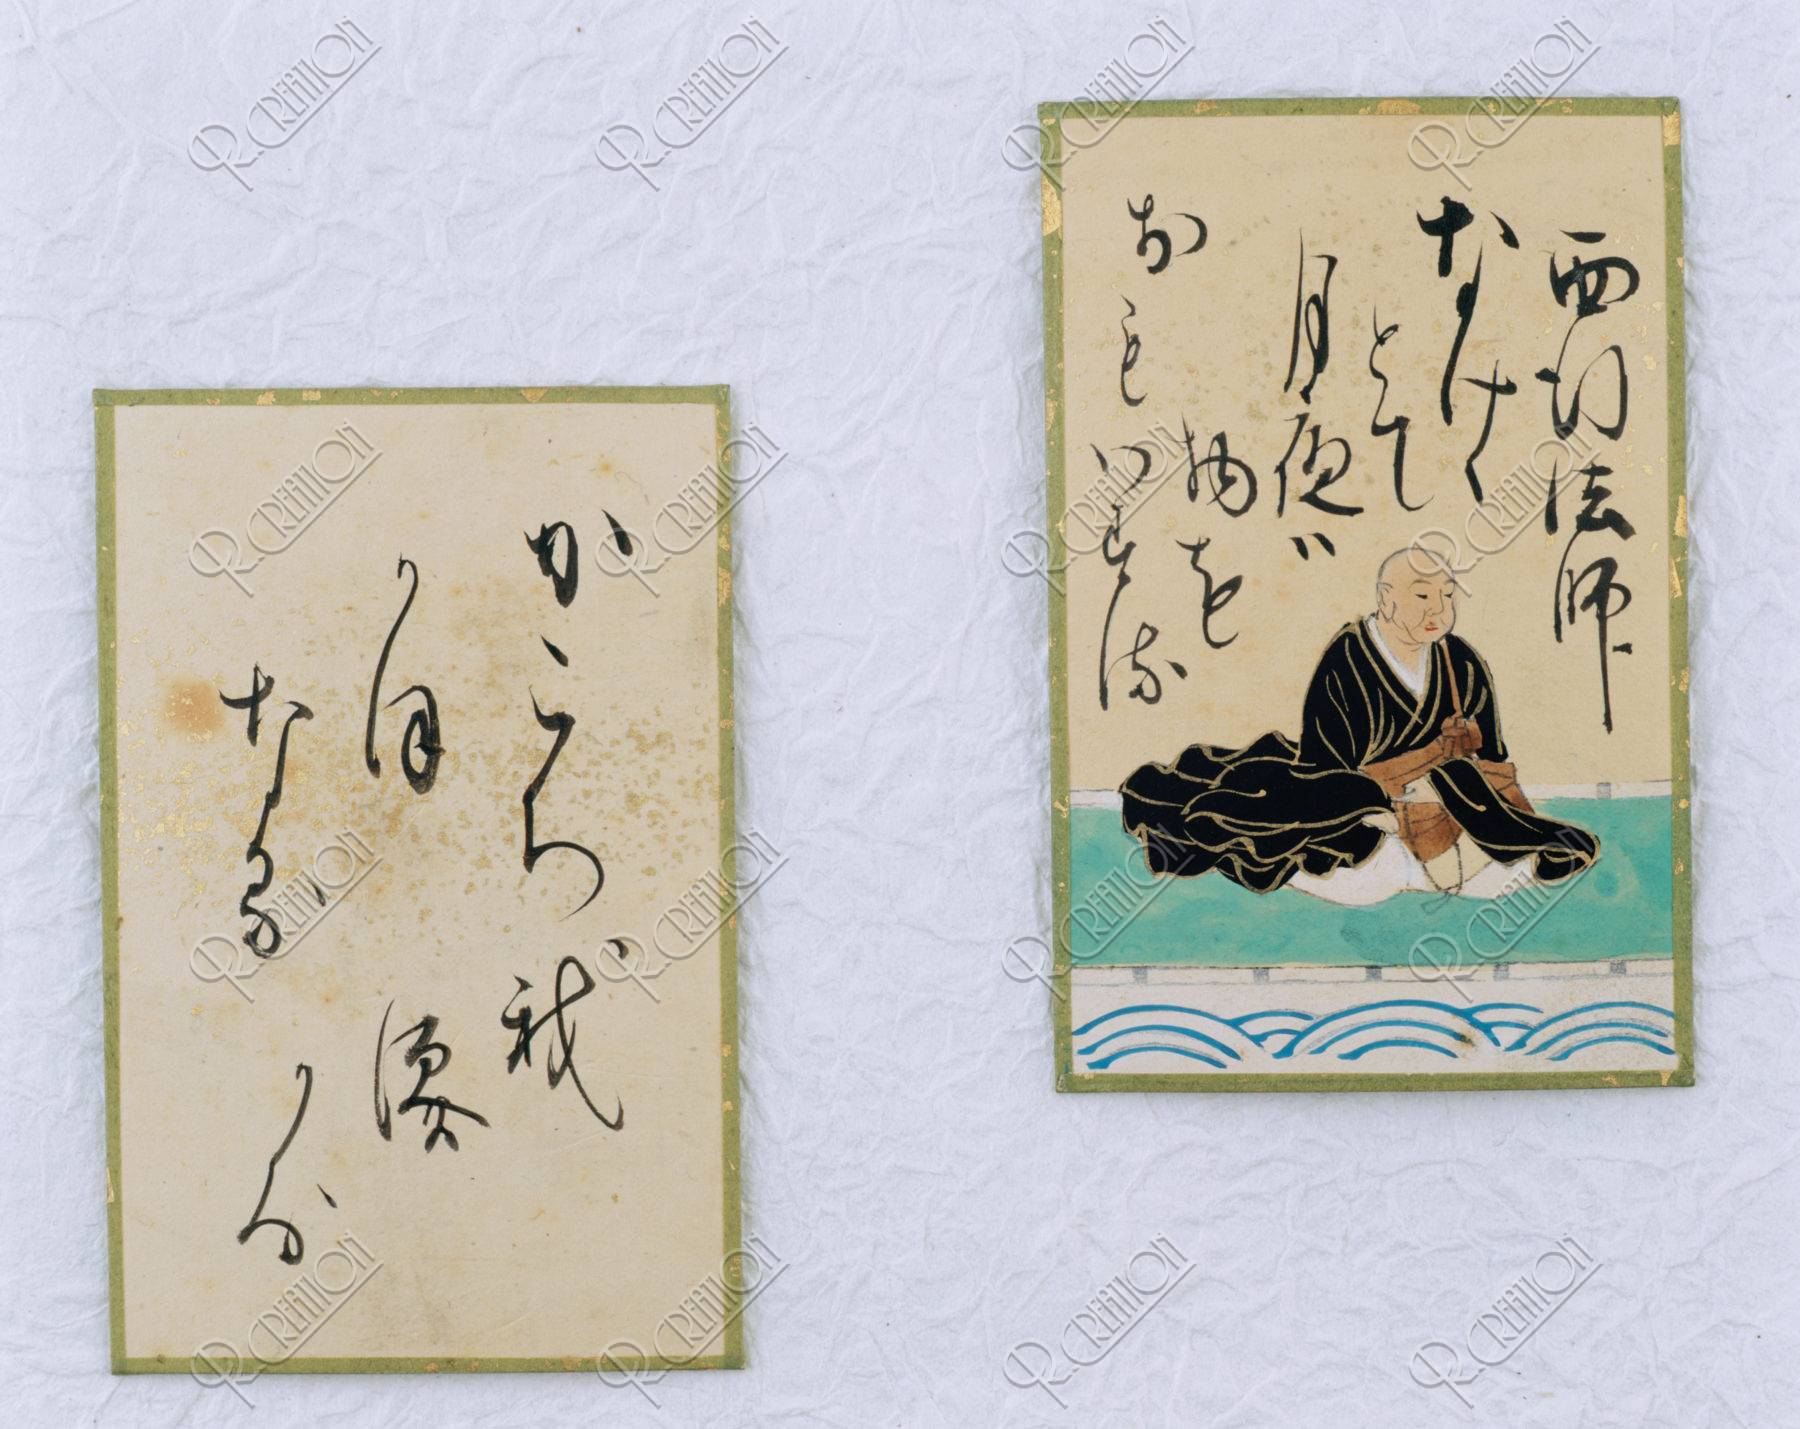 西行法師
なけけ
とて
月夜ハ
物を
おもハする
かこち
かほ
なる
我
涙
かな
R.CREATION